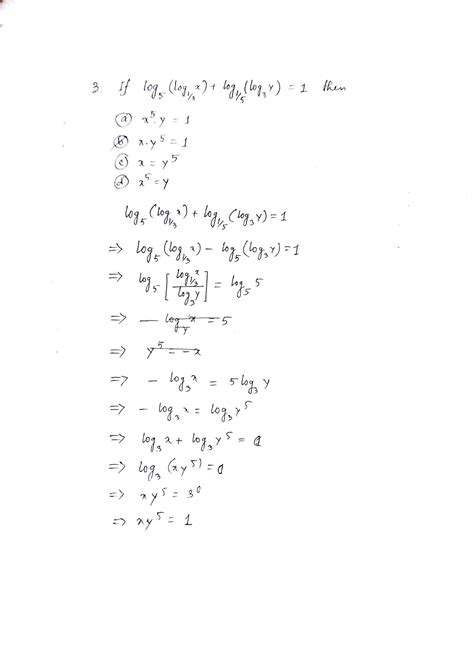 3. If log₅(log₁/₃ x) + log₁/₅(log₃ y) = 1 then
(a) x⁵·y = 1
(b) x·y⁵ = 1
(c) x = y⁵
(d) x⁵ = y
log₅(log₁/₃ x) + log₁/₅(log₃ y) = 1
=> log₅(log₁/₃ x) - log₅(log₃ y) = 1
=> log₅[log₁/₃ x / log₃ y] = log₅ 5
=> - log_y x = 5
=> y⁵ = -x
=> - log₃ x = 5 log₃ y
=> - log₃ x = log₃ y⁵
=> log₃ x + log₃ y⁵ = 0
=> log₃ (xy⁵) = 0
=> xy⁵ = 3⁰
=> xy⁵ = 1